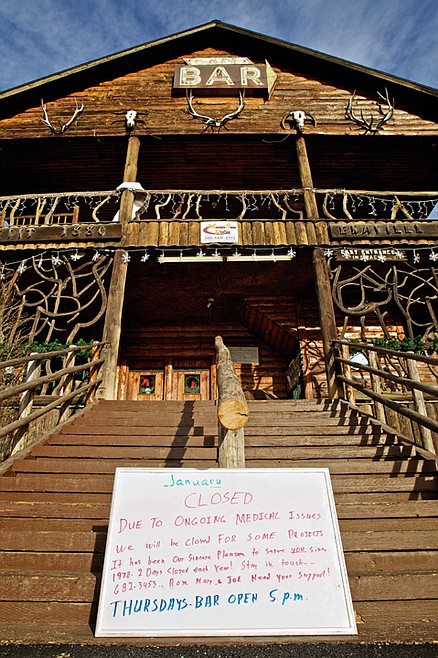 BAR
1880
ENAVILLE
January
CLOSED
DUE TO ONGOING MEDICAL ISSUES
We will be closed FOR SOME PROJECTS
It has been our Sincere Pleasure to serve you since
1978. 2 Days Closed each Year! Stay in touch...
682-3453.. Rose Mary & Joe Need your Support!
THURSDAYS-BAR OPEN 5 p.m.